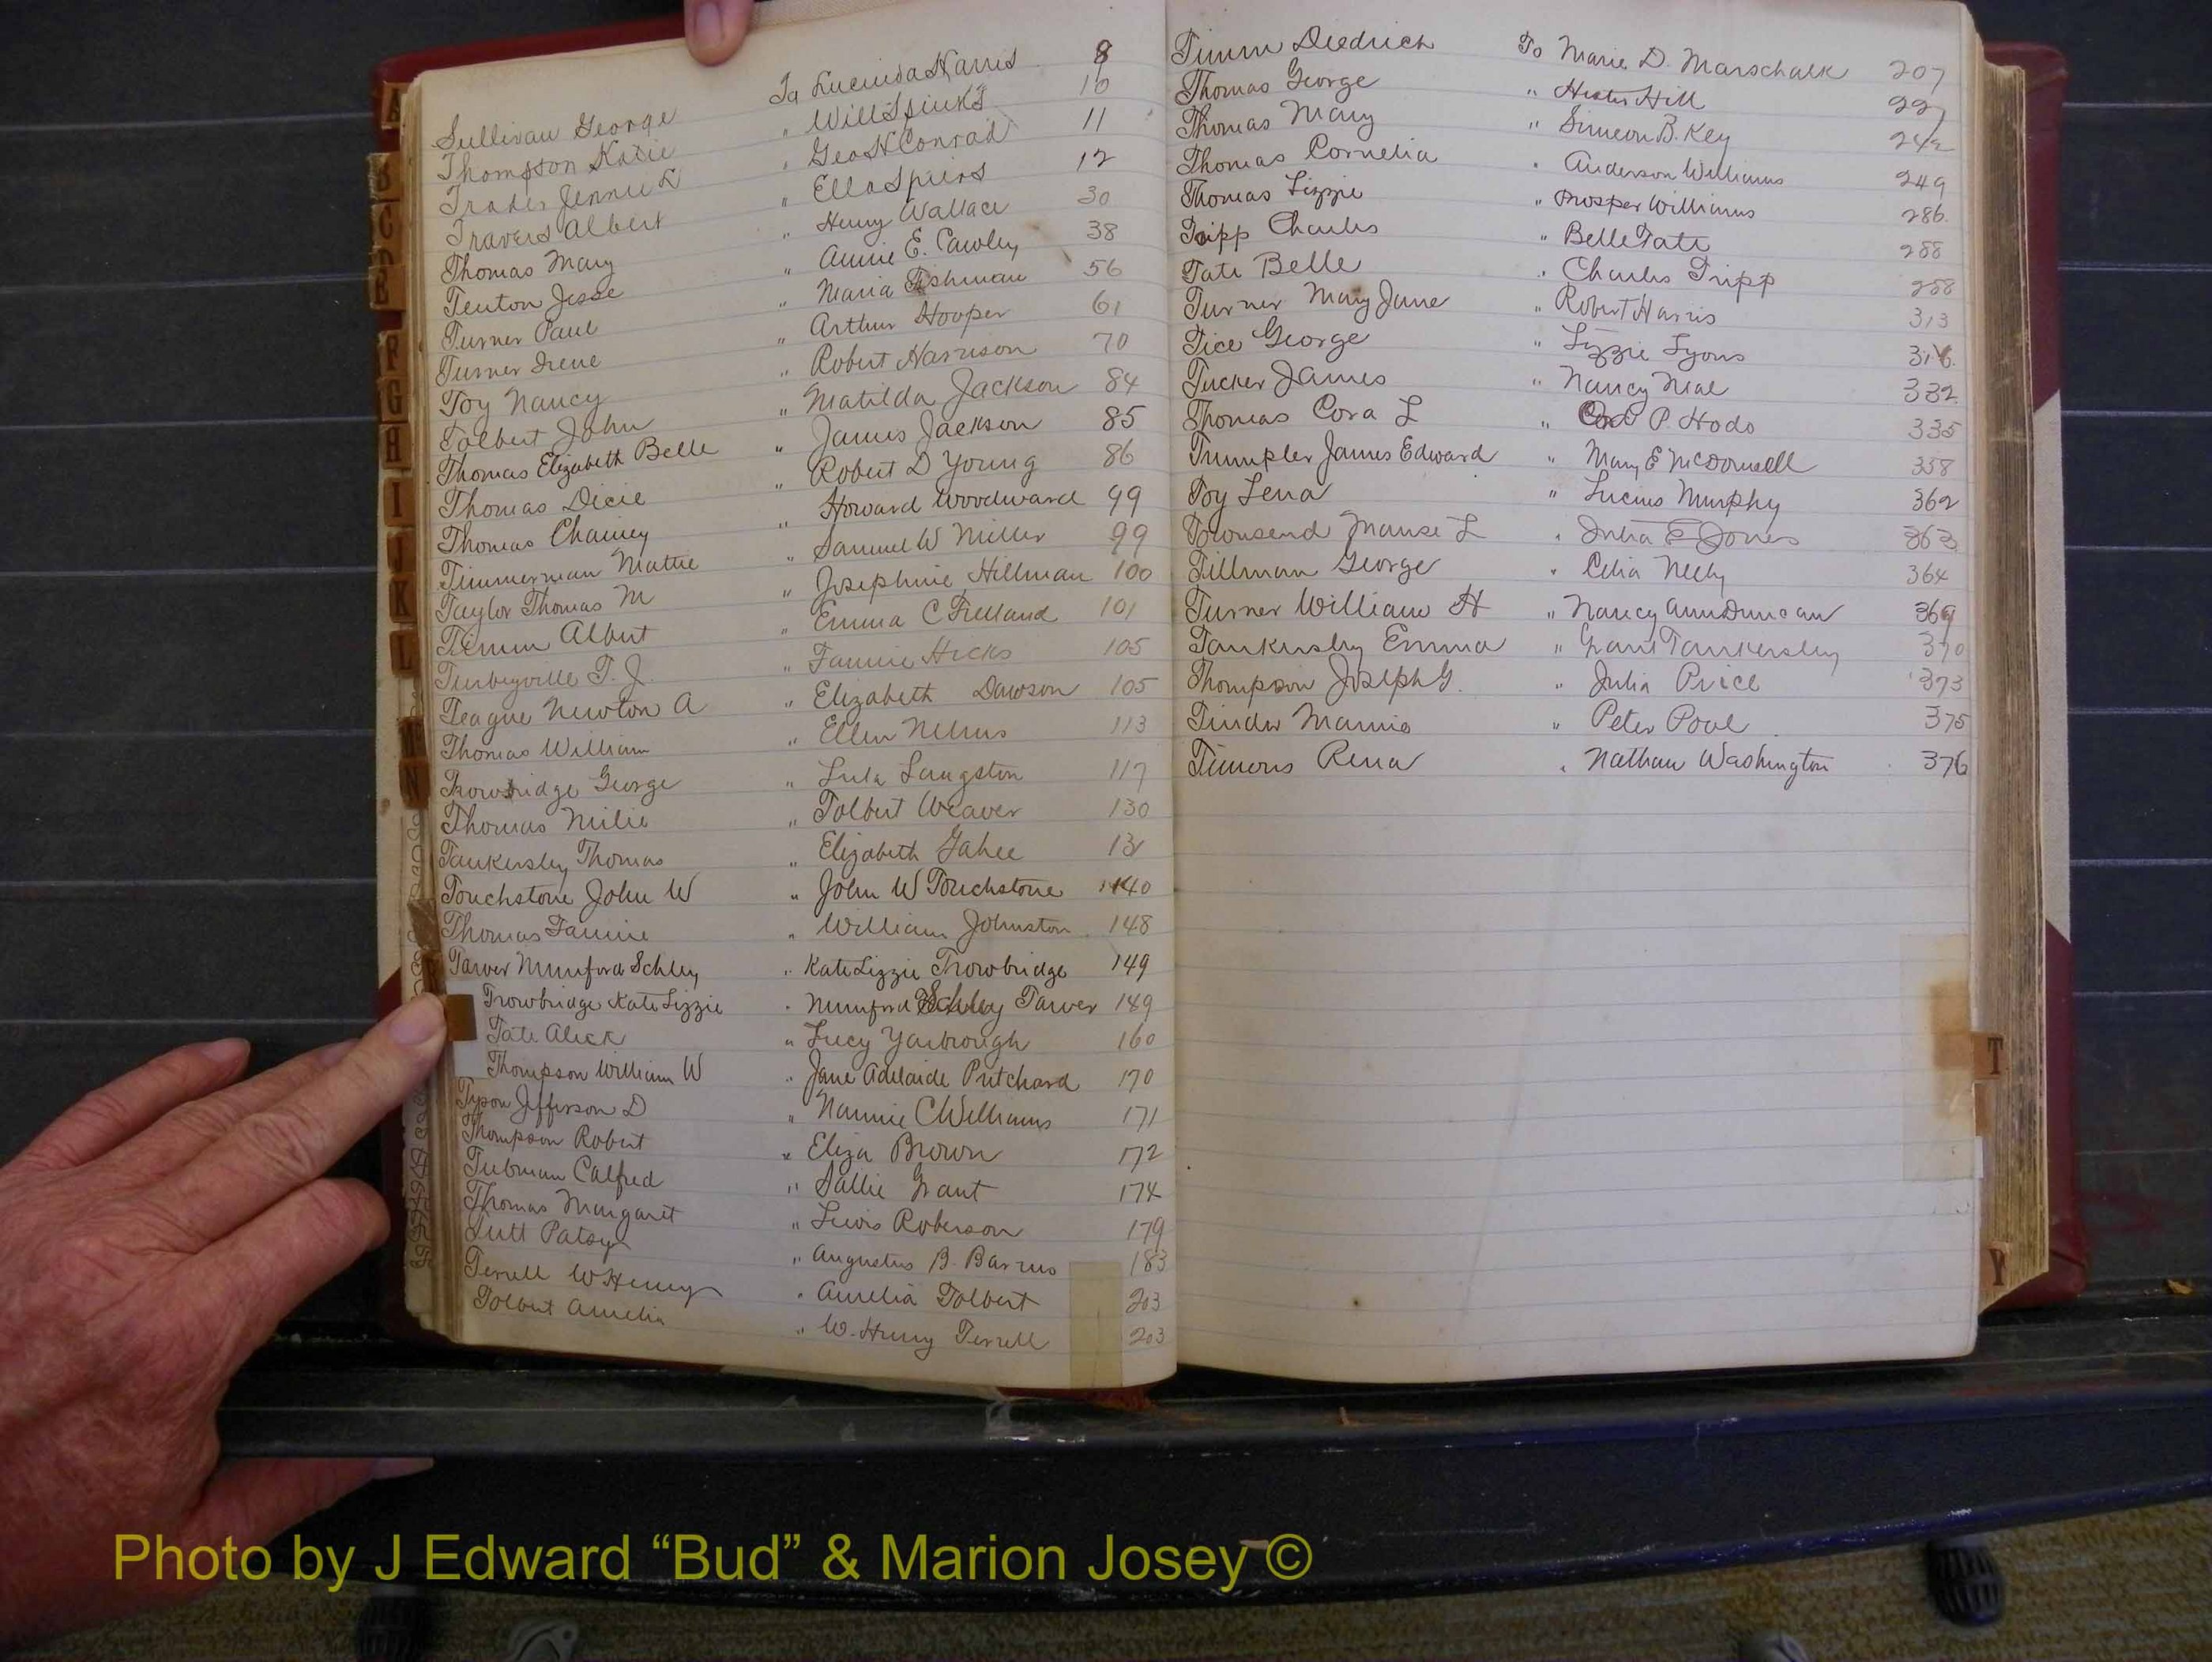 Sullivan George To Lucinda Harris 8
Thompson Katie " Will Spinks 10
Trader Jennie L " Geo H Conrad 11
Travers Albert " Ella Spiers 12
Thomas Mary " Henry Wallace 30
Tenton Jesse " Annie E. Cawley 38
Turner Paul " Maria Fishman 56
Turner Irene " Arthur Hooper 61
Toy Nancy " Robert Harrison 70
Tolbert John " Matilda Jackson 84
Thomas Elizabeth Belle " James Jackson 85
Thomas Dicie " Robert D Young 86
Thomas Chaney " Howard Woodward 99
Timmerman Mattie " Samuel W Miller 99
Taylor Thomas M " Josephine Hillman 100
Timm Albert " Emma C 101
Turbeyville T. J. " Fannie Hicks 105
Teague Newton A " Elizabeth Dawson 105
Thomas William " Ellen 113
Trowbridge George " Lula Langston 117
Thomas Milie " Tolbert Weaver 130
Tankersley Thomas " Elizabeth Gahee 131
Touchstone John W " John W Touchstone 140
Thomas Fannie " William Johnston 148
Tarver Mumford Schley " Kate Lizzie Trowbridge 149
Trowbridge Kate Lizzie " Mumford Schley Tarver 149
Tate Aleck " Lucy Yarbrough 160
Thompson William W " Jane Adelaide Pritchard 170
Tyson Jefferson D " Nannie C Williams 171
Thompson Robert " Eliza Brown 172
Tubman Calfred " Sallie Grant 174
Thomas Margaret " Lewis Roberson 179
Tutt Patsy " Augustus B. Barrus 183
Terrell W Henry " Amelia Tolbert 203
Tolbert Amelia " W. Henry Terrell 203
Timm Diedrich To Marie D. Marschalk 207
Thomas George " Hester Hill 227
Thomas Mary " Simeon B. Key 242
Thomas Cornelia " Anderson Williams 249
Thomas Lizzie " Prosper Williams 286
Tripp Charles " Belle Tate 288
Tate Belle " Charles Tripp 288
Turner Mary Jane " Robert Harris 313
Tice George " Lizzie Lyons 316
Tucker James " Nancy Neal 332
Thomas Cora L " P. Hodo 335
Trumpler James Edward " Mary E McDonnell 358
Toy Lena " Lucius Murphy 362
Townsend Manse L " Julia E Jones 363
Tillman George " Celia Neely 364
Turner William H " Nancy Ann Duncan 369
Tankersley Emma " Grant Tankersley 370
Thompson Joseph G. " Julia Price 373
Tinder Mamie " Peter Pool 375
Timons Rena " Nathan Washington 376
B
C
F
G
H
I
J
K
L
N
T
Y
Photo by J Edward “Bud” & Marion Josey ©